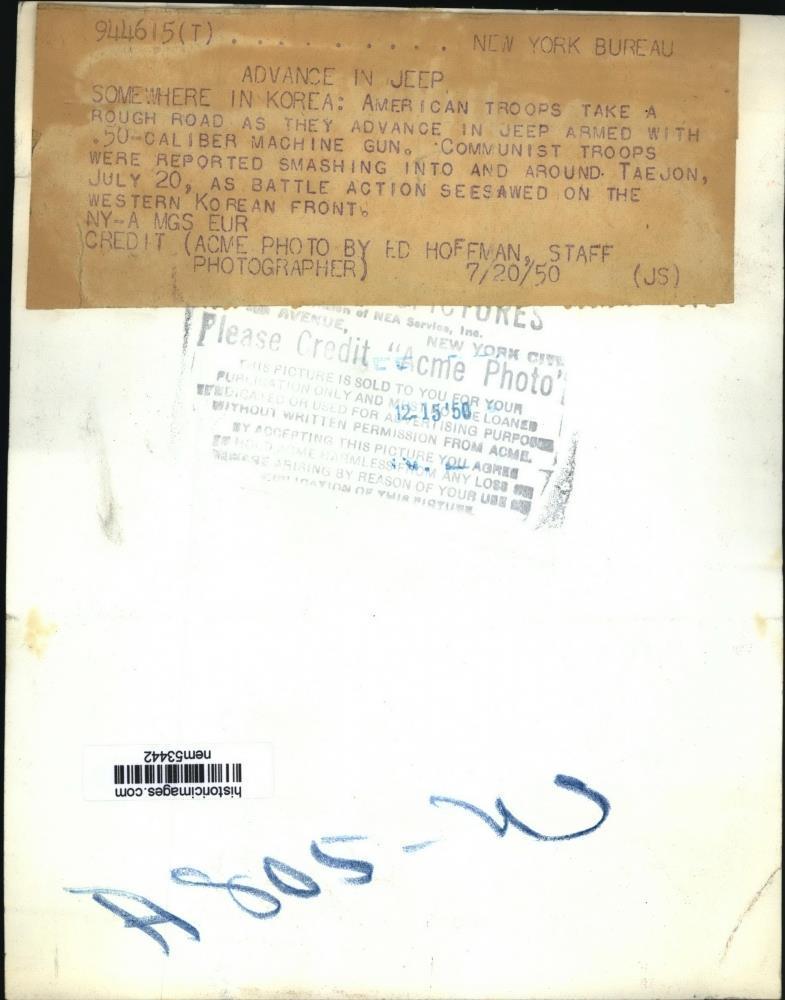 944615(T) . . . . . . . . . . NEW YORK BUREAU
ADVANCE IN JEEP
SOMEWHERE IN KOREA: AMERICAN TROOPS TAKE A
ROUGH ROAD AS THEY ADVANCE IN JEEP ARMED WITH
.50-CALIBER MACHINE GUN. COMMUNIST TROOPS
WERE REPORTED SMASHING INTO AND AROUND TAEJON,
JULY 20, AS BATTLE ACTION SEESAWED ON THE
WESTERN KOREAN FRONT.
NY-A MGS EUR
CREDIT (ACME PHOTO BY ED HOFFMAN, STAFF
PHOTOGRAPHER) 7/20/50 (JS)
PICTURES
of NEA Service, Inc.
AVENUE, NEW YORK CITY
Please Credit "Acme Photo"
THIS PICTURE IS SOLD TO YOU FOR YOUR
PUBLICATION ONLY AND MUST NOT BE LOANED
OR USED FOR ADVERTISING PURPOSES
WITHOUT WRITTEN PERMISSION FROM ACME.
BY ACCEPTING THIS PICTURE YOU AGREE
HOLD ACME HARMLESS FROM ANY LOSS
ARISING BY REASON OF YOUR USE
PUBLICATION OF THIS PICTURE
12-15'50
historicimages.com
nem53442
A805-W